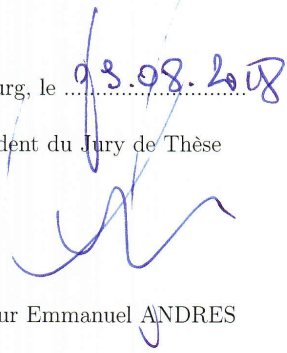 urg, le 03.08.2018
dent du Jury de Thèse
ur Emmanuel ANDRES